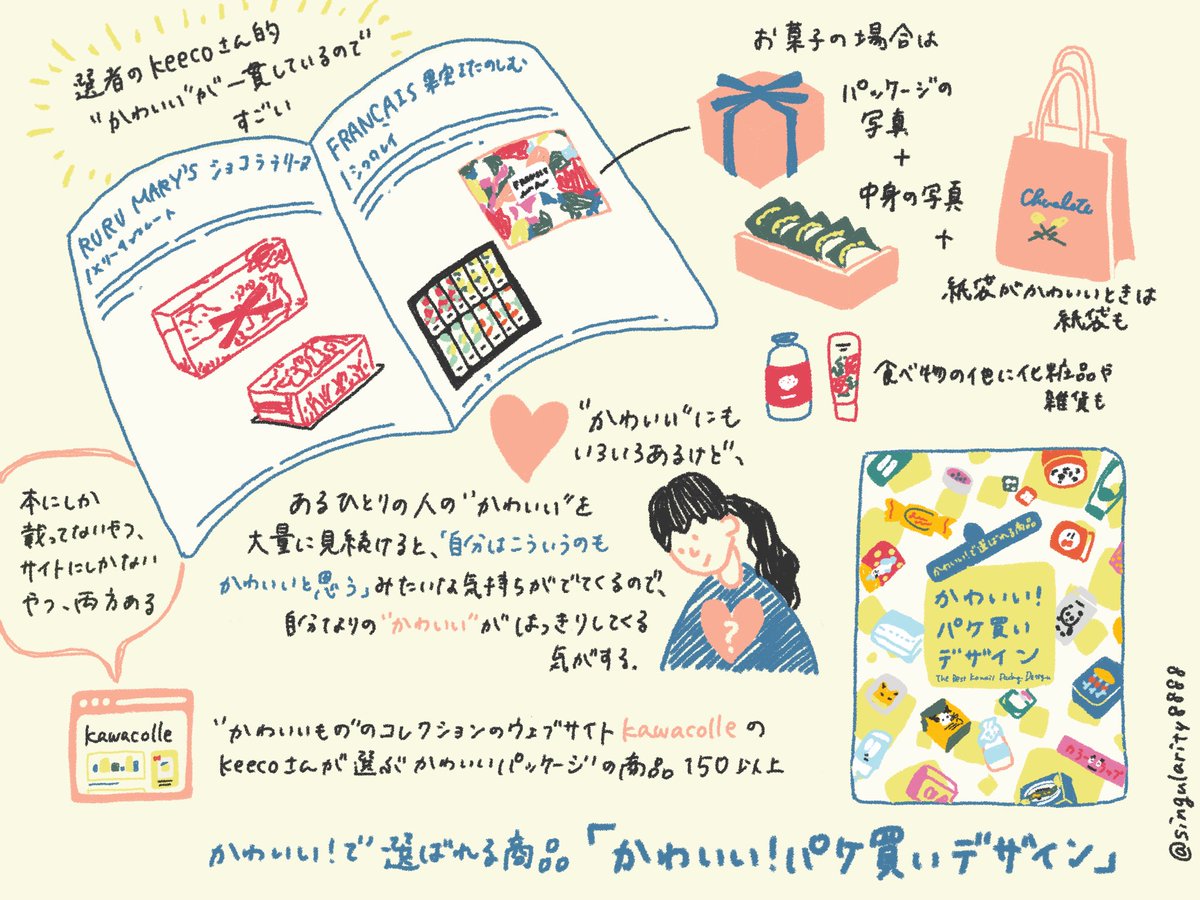 選者のkeecoさん的
"かわいい"が一貫しているので
すごい
RURU MARY'S ショコララリーヌ
FRANCAIS 果実をたのしむ
お菓子の場合は
パッケージの
写真
+
中身の写真
+
紙袋がかわいいときは
紙袋も
Chocolate
食べ物の他に化粧品や
雑貨も
"かわいい"にも
いろいろあるけど、
あるひとりの人の"かわいい"を
大量に見続けると、「自分はこういうのも
かわいいと思う」みたいな気持ちがでてくるので、
自分なりの"かわいい"がはっきりしてくる
気がする.
?
本にしか
載ってないやつ、
サイトにしかない
やつ、両方ある
kawacolle
"かわいいもの"のコレクションのウェブサイトkawacolleの
keecoさんが選ぶ"かわいいパッケージ"の商品150以上
かわいい!で選ばれる商品
かわいい!
パケ買い
デザイン
The Best Kawaii Design
かわいい!で選ばれる商品「かわいい!パケ買いデザイン」
@singularity8888